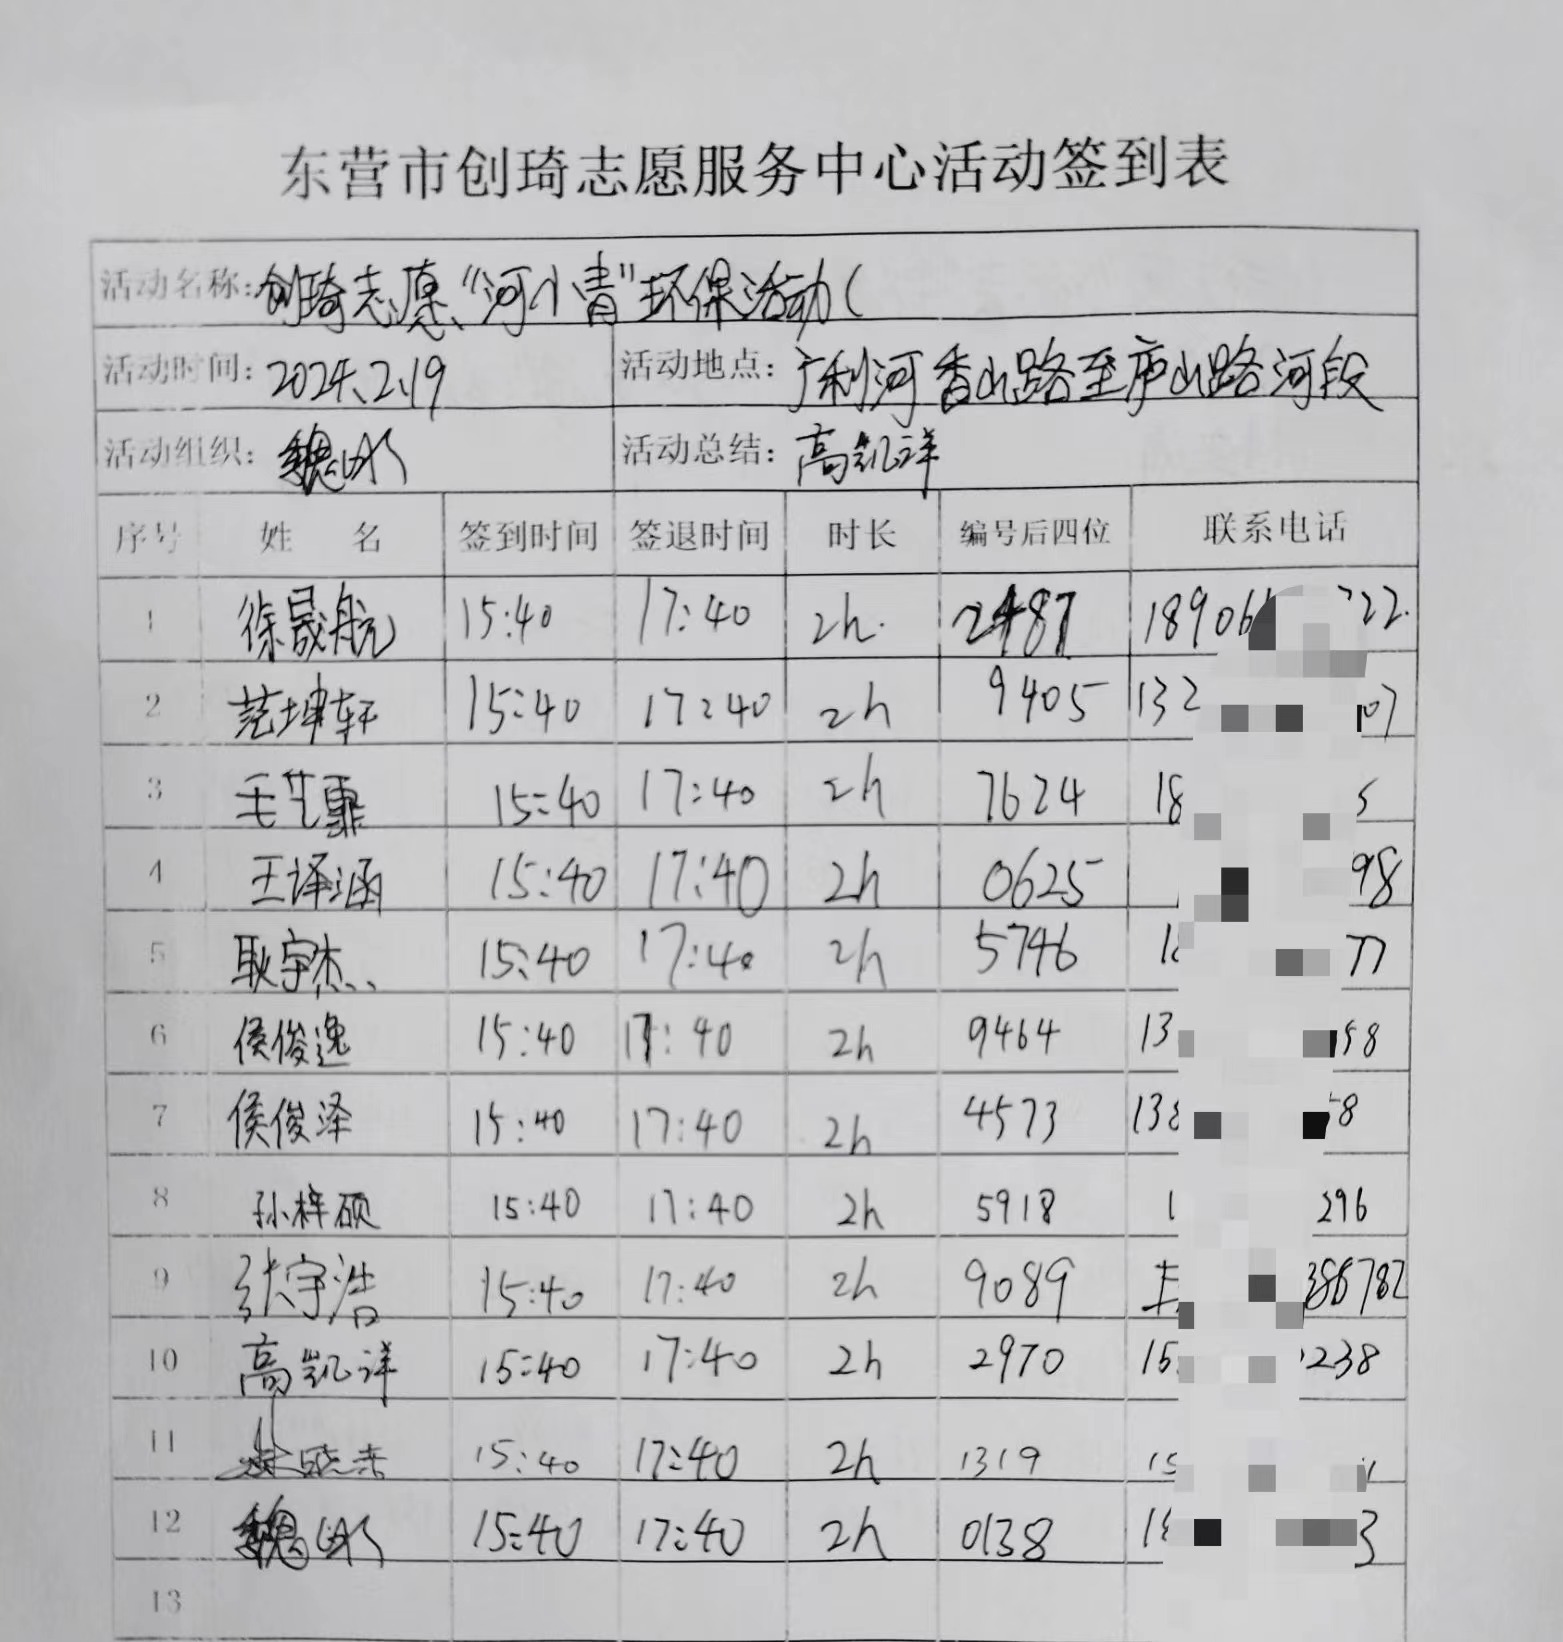 东营市创琦志愿服务中心活动签到表
活动名称: 创琦志愿“河小青”环保活动(
活动时间: 2024.2.19 活动地点: 广利河香山路至庐山路河段
活动组织: 魏 活动总结: 高凯祥
序号 姓 名 签到时间 签退时间 时长 编号后四位 联系电话
1 徐晟航 15:40 17:40 2h. 2487 18906 722.
2 范坤轩 15:40 17:40 2h 9405 132 07
3 毛 15:40 17:40 2h 7624 18 5
4 王译涵 15:40 17:40 2h 0625 98
5 耿宇杰 15:40 17:40 2h 5746 77
6 侯俊逸 15:40 17:40 2h 9464 13 58
7 侯俊泽 15:40 17:40 2h 4573 138 58
8 孙梓硕 15:40 17:40 2h 5918 1 296
9 张宇浩 15:40 17:40 2h 9089 386782
10 高凯祥 15:40 17:40 2h 2970 15 238
11 15:40 17:40 2h 1319 15
12 魏 15:40 17:40 2h 0138 1 3
13